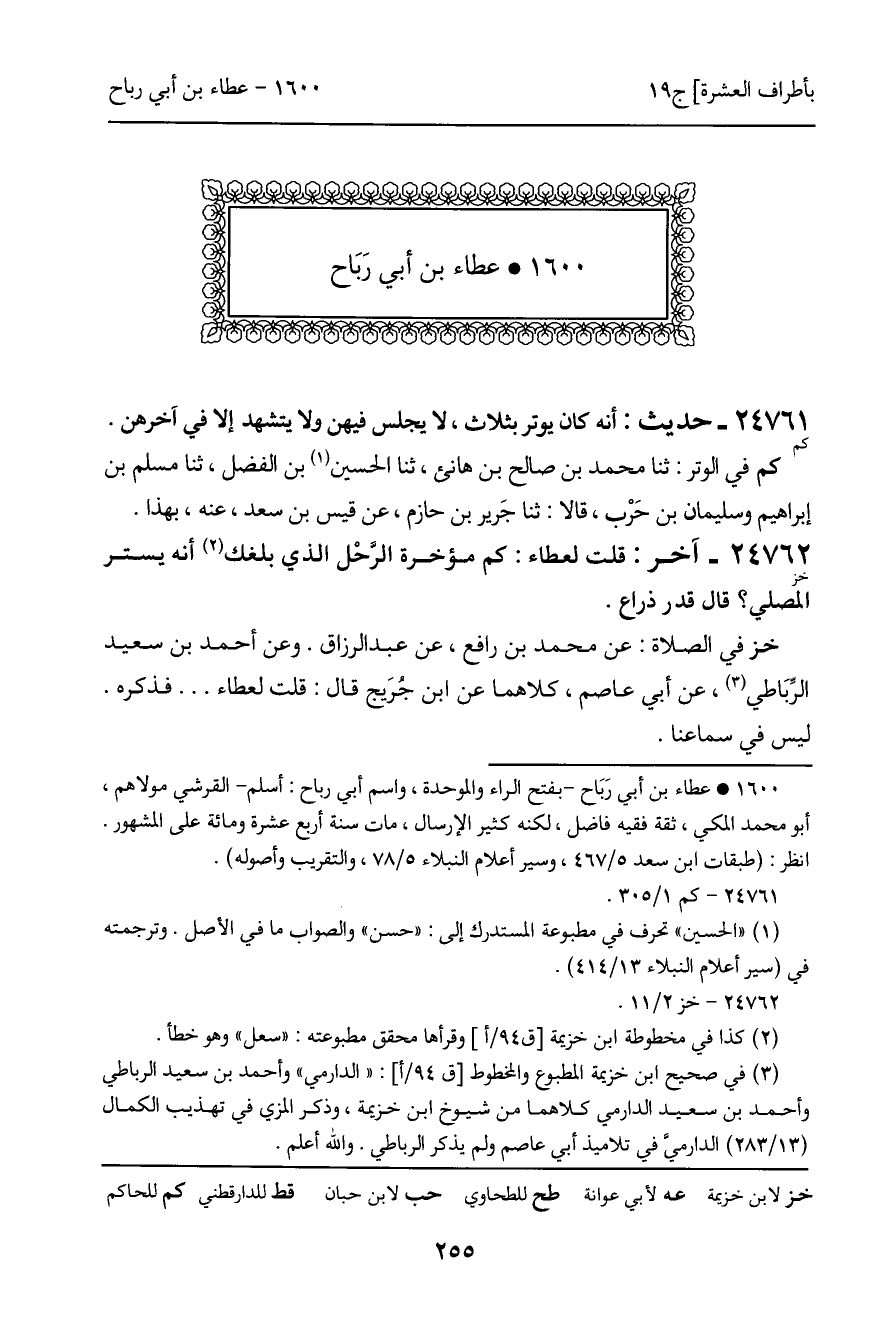 بأطراف العشرة] ج١٩
١٦٠٠ - عطاء بن أبي رباح
١٦٠٠ • عطاء بن أبي رَبَاح
٢٤٧٦١ ـ حديث : أنه كان يوتر بثلاث ، لا يجلس فيهن ولا يتشهد إلا في آخرهن .
كم
كم في الوتر : ثنا محمد بن صالح بن هانئ ، ثنا الحسين(١) بن الفضل ، ثنا مسلم بن
إبراهيم وسليمان بن حَرْب ، قالا : ثنا جَرير بن حازم ، عن قيس بن سعد ، عنه ، بهذا .
٢٤٧٦٢ ـ آخر : قلت لعطاء : كم مؤخرة الرَّحْل الذي بلغك(٢) أنه يستر
خز
المصلي؟ قال قدر ذراع .
خز في الصلاة : عن محمد بن رافع ، عن عبدالرزاق . وعن أحمد بن سعيد
الرِّبَاطي(٣) ، عن أبي عاصم ، كلاهما عن ابن جُرَيج قال : قلت لعطاء ... فذكره .
ليس في سماعنا .
١٦٠٠ • عطاء بن أبي رَبَاح -بفتح الراء والموحدة ، واسم أبي رباح : أسلم- القرشي مولاهم ،
أبو محمد المكي ، ثقة فقيه فاضل ، لكنه كثير الإرسال ، مات سنة أربع عشرة ومائة على المشهور .
انظر : (طبقات ابن سعد ٤٦٧/٥ ، وسير أعلام النبلاء ٧٨/٥ ، والتقريب وأصوله) .
٢٤٧٦١ - كم ٣٠٥/١ .
(١) «الحسين» تحرف في مطبوعة المستدرك إلى : «حسن» والصواب ما في الأصل . وترجمته
في (سير أعلام النبلاء ٤١٤/١٣) .
٢٤٧٦٢ - خز ١١/٢ .
(٢) كذا في مخطوطة ابن خزيمة [ق٩٤/أ ] وقرأها محقق مطبوعته : «سعل» وهو خطأ .
(٣) في صحيح ابن خزيمة المطبوع والمخطوط [ق ٩٤/أ] : « الدارمي» وأحمد بن سعيد الرباطي
وأحمد بن سعيد الدارمي كلاهما من شيوخ ابن خزيمة ، وذكر المزي في تهذيب الكمال
(٢٨٣/١٣) الدارميَّ في تلاميذ أبي عاصم ولم يذكر الرباطي . والله أعلم .
خز لابن خزيمة عه لأبي عوانة طح للطحاوي حب لابن حبان قط للدارقطني كم للحاكم
٢٥٥